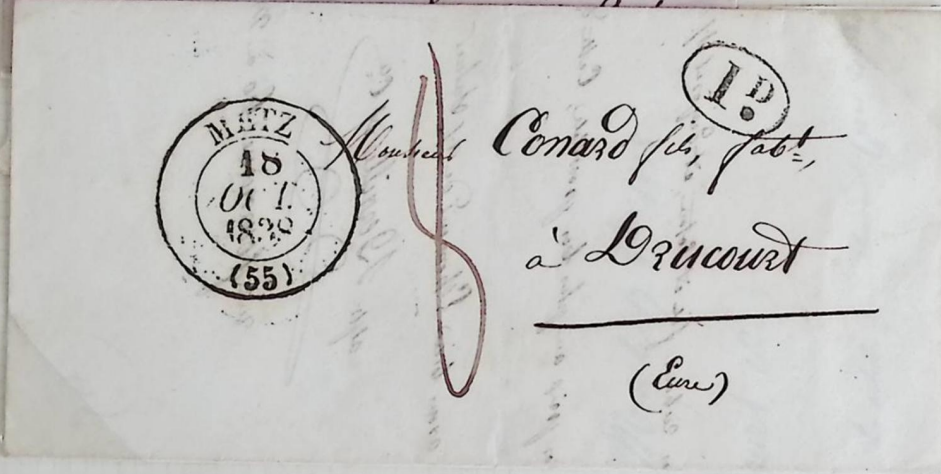 1D
METZ
18
OCT.
1838
(55)
Monsieur Conard fils, fabt,
à Drucourt
(Eure)